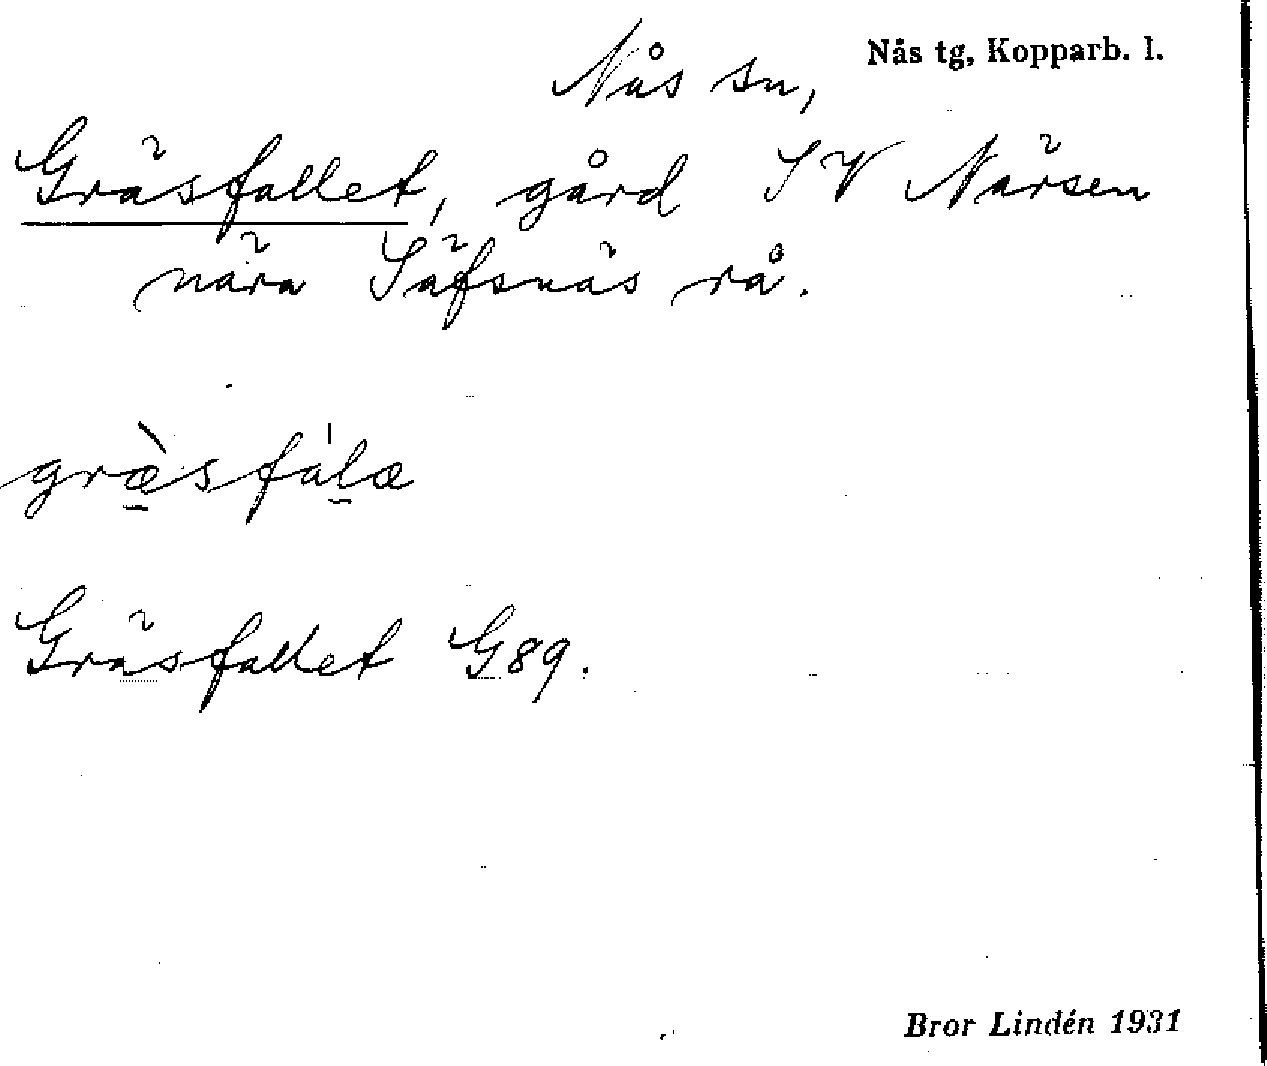 Nås sn, Nås tg, Kopparb. l.
Gräsfallet, gård SV Närsen
nära Säfsnäs rå.
græ̀sfa̍læ
Gräsfallet G89.
Bror Lindén 1931